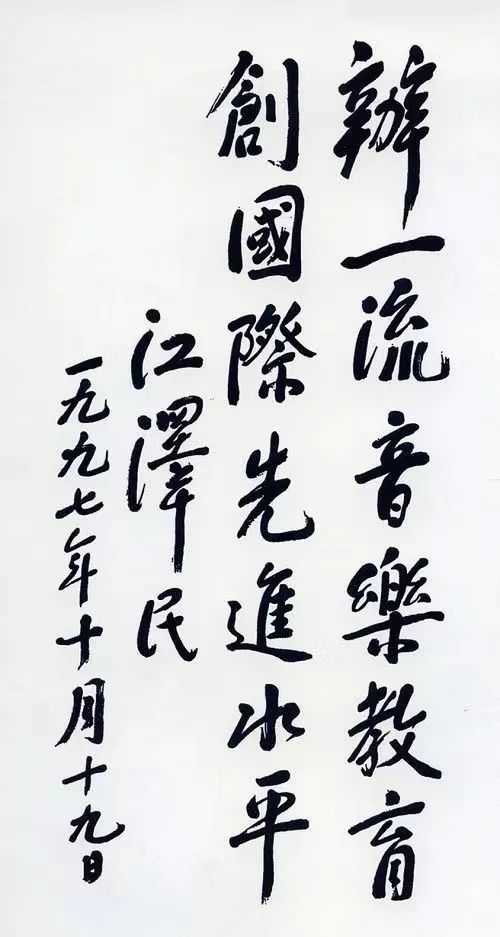 辦一流音樂教育
創國際先進水平
江澤民
一九九七年十月十九日